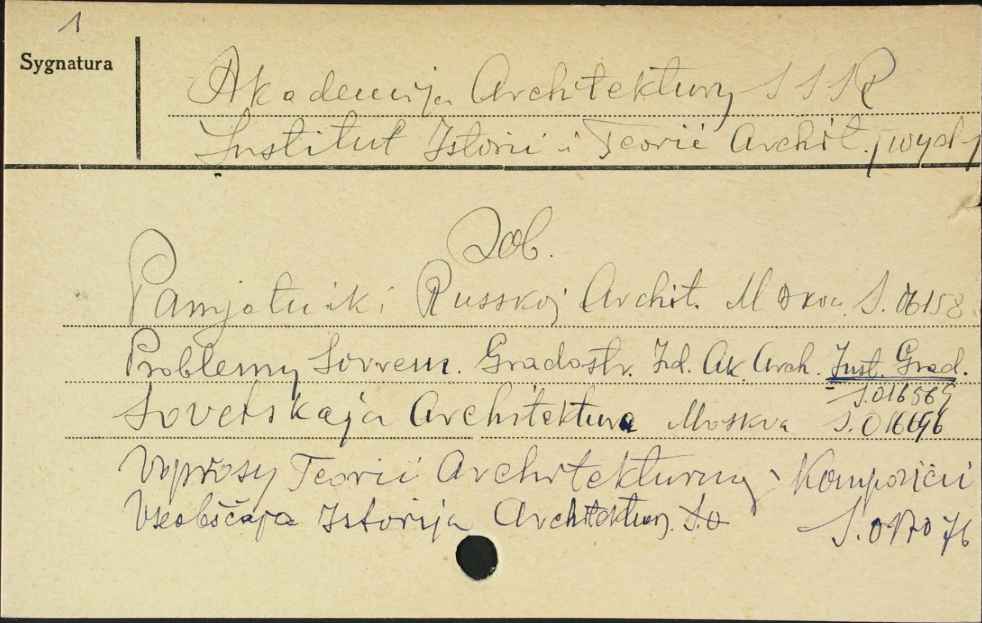 1
Sygnatura
Akademija Architektury SSSR
Institut Istorii i Teorii Archit. [wyd.]
Zob.
Pamjatniki Russkoj Archit. Moskva S. 16158
Problemy Sovrem. Gradostr. Izd. Ak. Arch. Inst. Grad.
S.016569
Sovetskaja Architektura Moskva S.016696
Voprosy Teorii Architekturnoj Kompozicii
Vseobščaja Istorija Architektury. S.017076